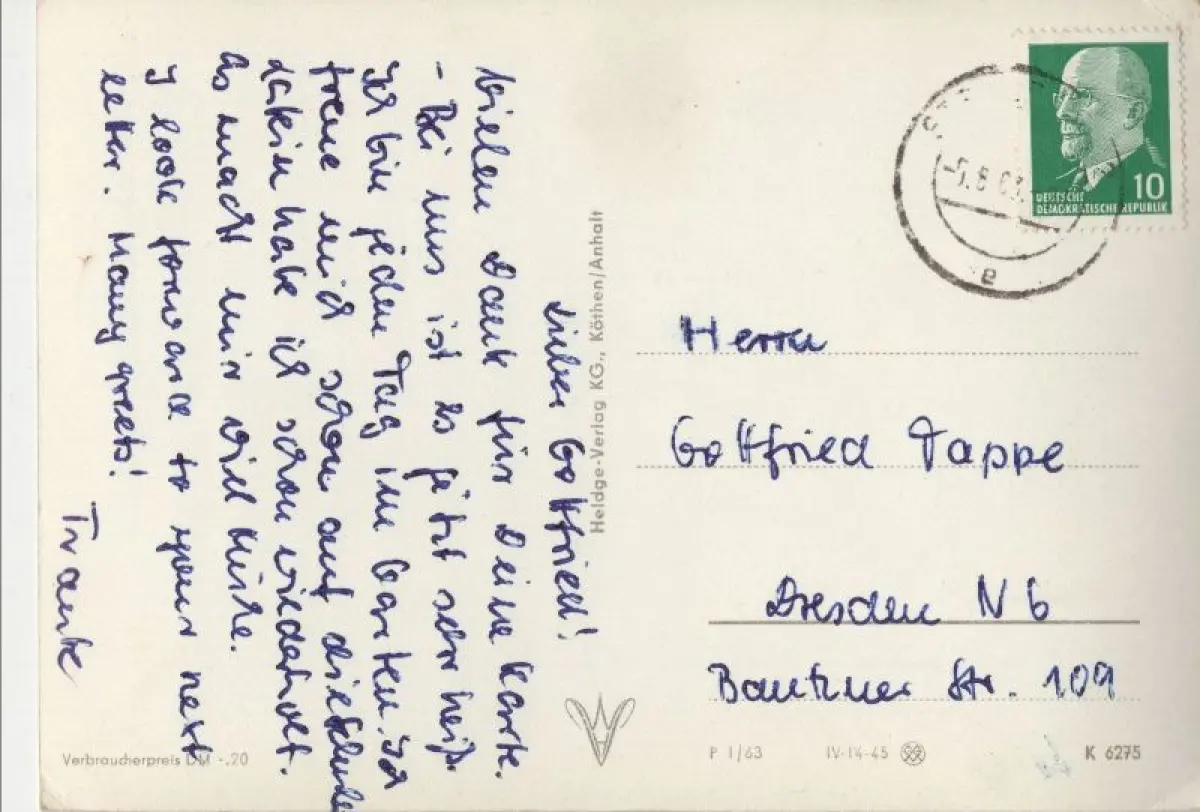 Lieber Gottfried!
Vielen Dank für Deine Karte.
- Bei uns ist es jetzt sehr heiß.
Ich bin jeden Tag im Garten. Ich
freue mich schon auf die Schule
Latein habe ich schon wiederholt.
Es macht mir viel Mühe.
I look forward to your next
letter. Many greets!
Traute
Heldge-Verlag KG., Köthen/Anhalt
10
DEUTSCHE
DEMOKRATISCHE REPUBLIK
e
Herrn
Gottfried Tappe
Dresden N 6
Bautzner Str. 109
Verbraucherpreis DM -.20
P 1/63 IV-14-45 K 6275